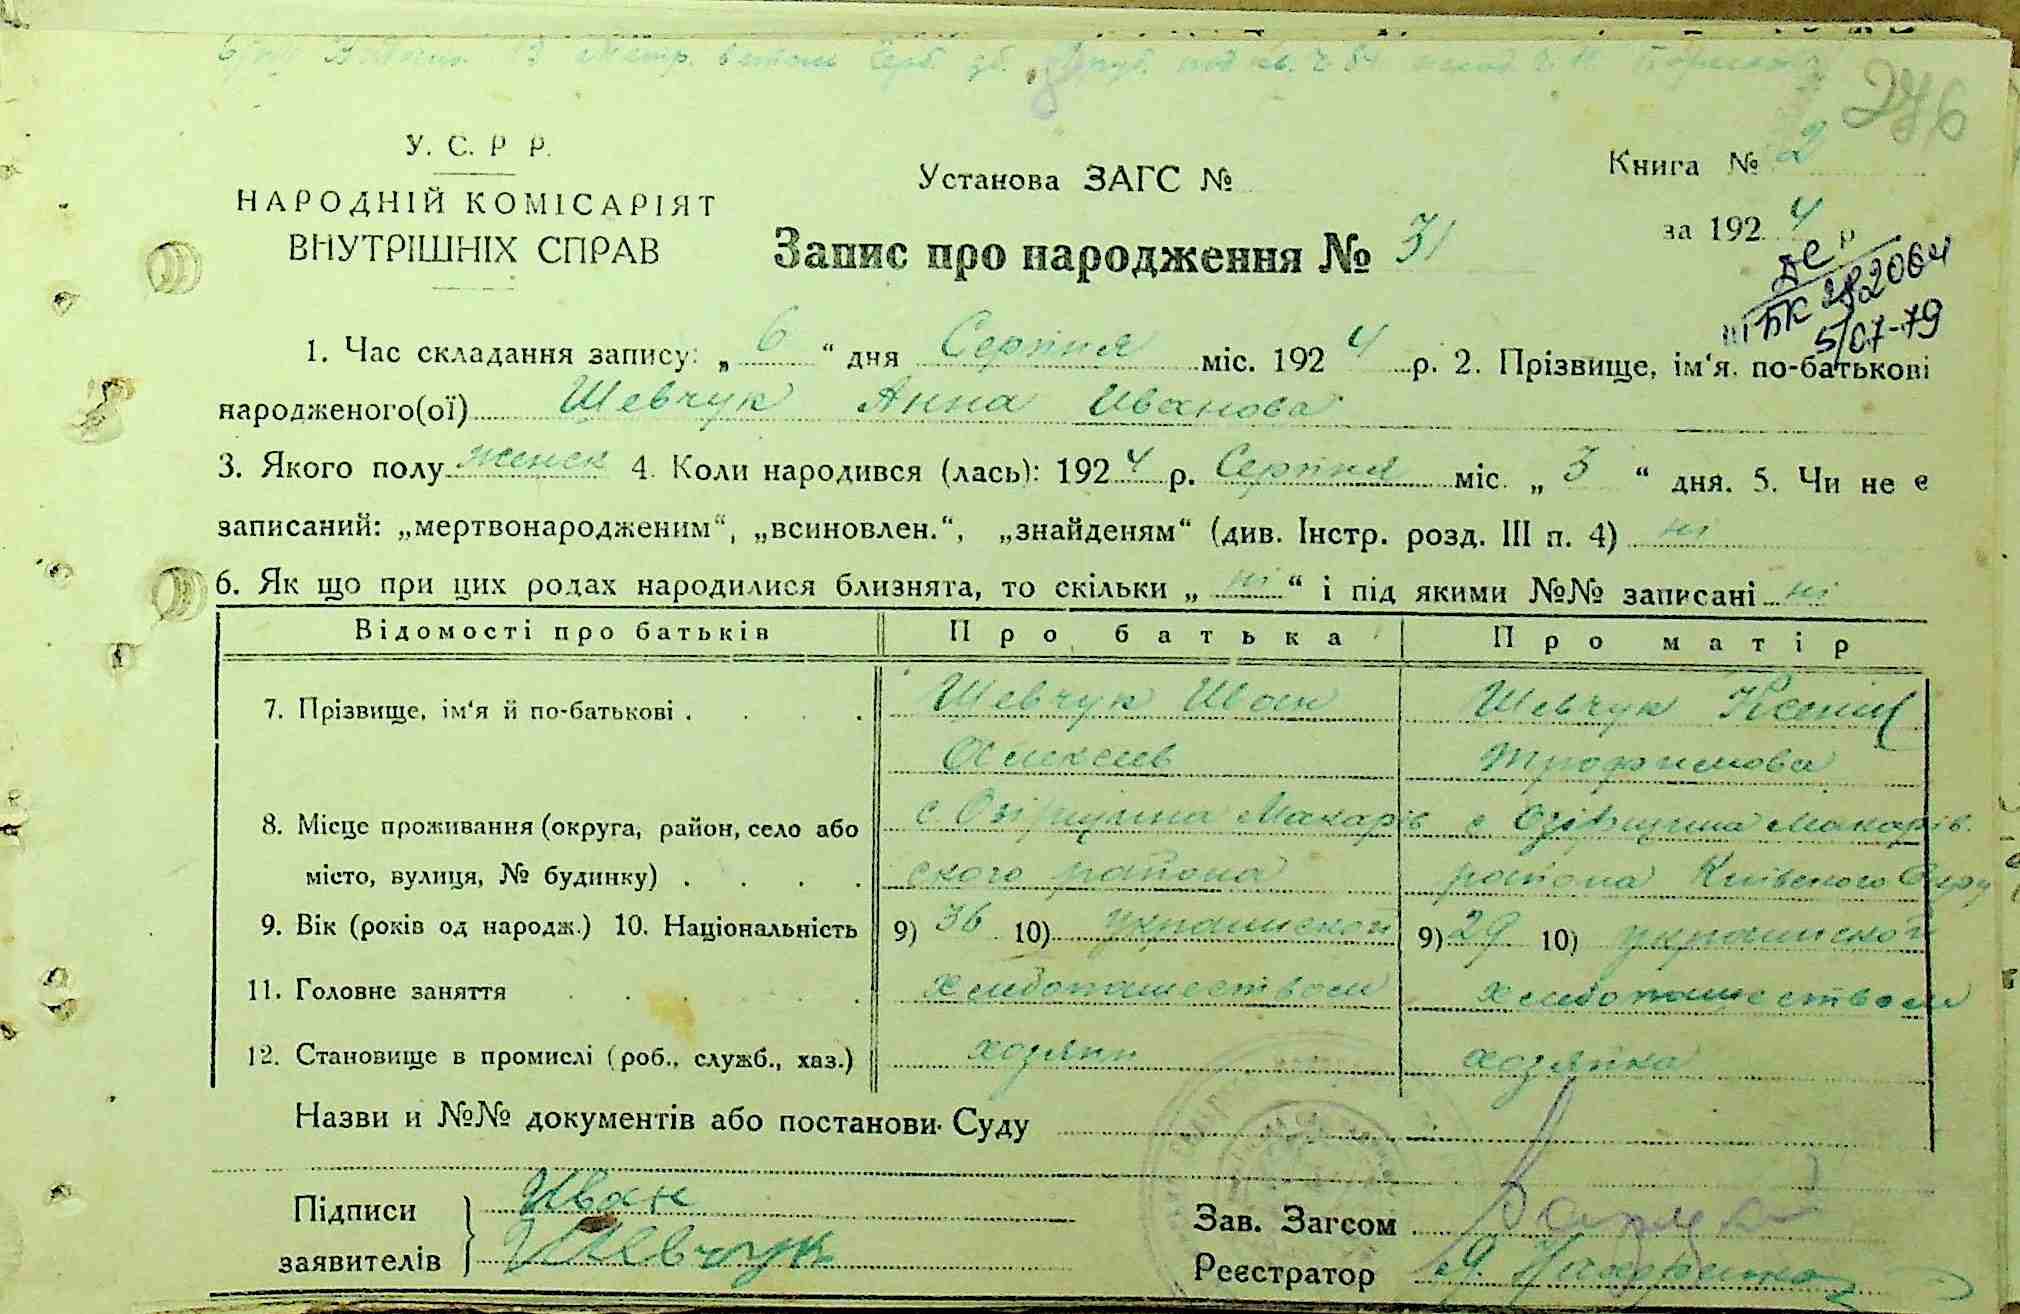 276
У. С. Р. Р.
НАРОДНІЙ КОМІСАРІЯТ
ВНУТРІШНІХ СПРАВ
Установа ЗАГС №
Книга № 2
за 1924 р
Запис про народження № 31
ІІІ БК 282064
5/07-79
1. Час складання запису: „ 6 “ дня Серпня міс. 1924 р. 2. Прізвище, ім‘я, по-батькові
народженого(ої) Шевчук Анна Иванова
3. Якого полу женск 4. Коли народився (лась): 1924 р. Серпня міс. „ 3 “ дня. 5. Чи не є
записаний: „мертвонародженим“, „всиновлен.“, „знайденям“ (див. Інстр. розд. III п. 4) ні
6. Як що при цих родах народилися близнята, то скільки „ ні “ і під якими №№ записані ні
Відомості про батьків Про батька Про матір
7. Прізвище, ім‘я й по-батькові . . . . Шевчук Иван Шевчук Ксенія
Алексеев Трофимова
8. Місце проживання (округа, район, село або с Озірщина Макарів с Озірщина Макарів.
місто, вулиця, № будинку) . . . . ского района района Київского Округ
9. Вік (років од народж.) 10. Національність 9) 36 10) украинской 9) 29 10) украинской
11. Головне заняття . . . . . хлебопашеством хлебопашеством
12. Становище в промислі (роб., служб., хаз.) хозяин хозяйка
Назви и №№ документів або постанови Суду
Підписи Иван
заявителів Шевчук
Зав. Загсом
Реєстратор